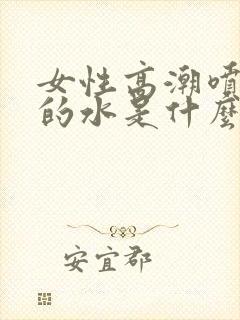 女性高潮噴
的水是什麼
安宜郡